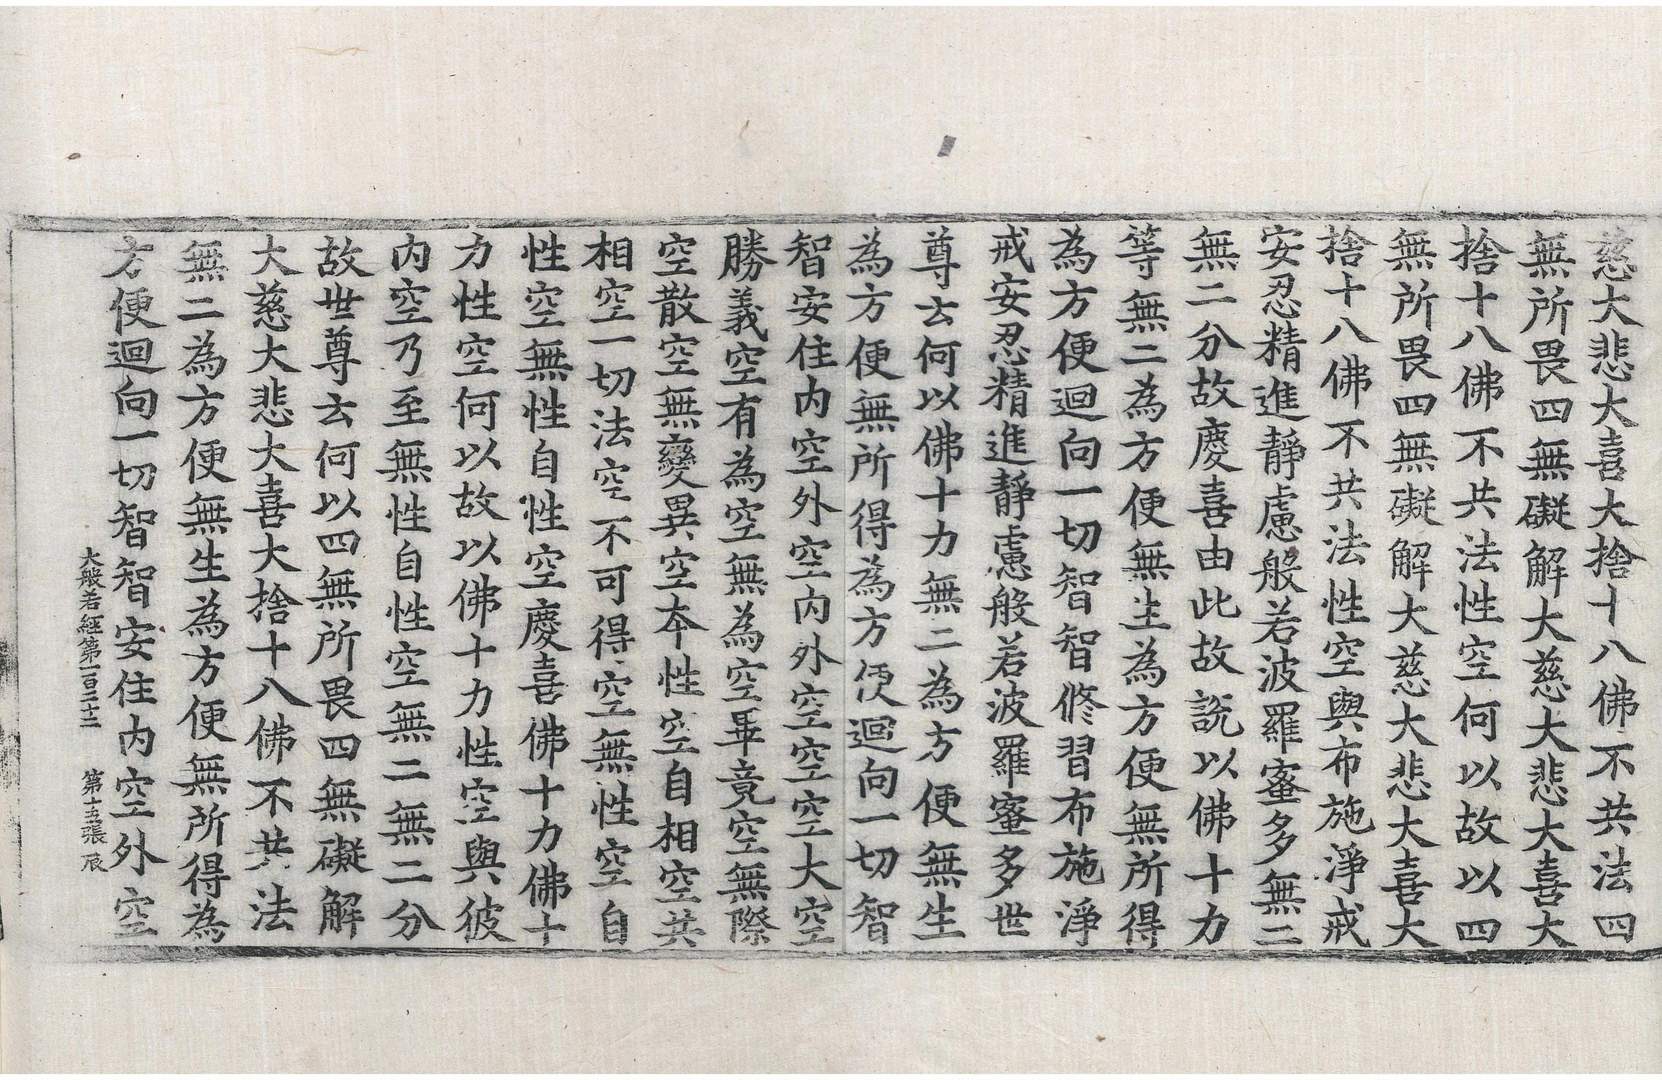 慈大悲大喜大捨十八佛不共法四
無所畏四無礙解大慈大悲大喜大
捨十八佛不共法性空何以故以四
無所畏四無礙解大慈大悲大喜大
捨十八佛不共法性空與布施淨戒
安忍精進靜慮般若波羅蜜多無二
無二分故慶喜由此故說以佛十力
等無二為方便無生為方便無所得
為方便迴向一切智智修習布施淨
戒安忍精進靜慮般若波羅蜜多世
尊云何以佛十力無二為方便無生
為方便無所得為方便迴向一切智
智安住內空外空內外空空空大空
勝義空有為空無為空畢竟空無際
空散空無變異空本性空自相空共
相空一切法空不可得空無性空自
性空無性自性空慶喜佛十力佛十
力性空何以故以佛十力性空與彼
內空乃至無性自性空無二無二分
故世尊云何以四無所畏四無礙解
大慈大悲大喜大捨十八佛不共法
無二為方便無生為方便無所得為
方便迴向一切智智安住內空外空
大般若經第一百二十二 第十五張 辰